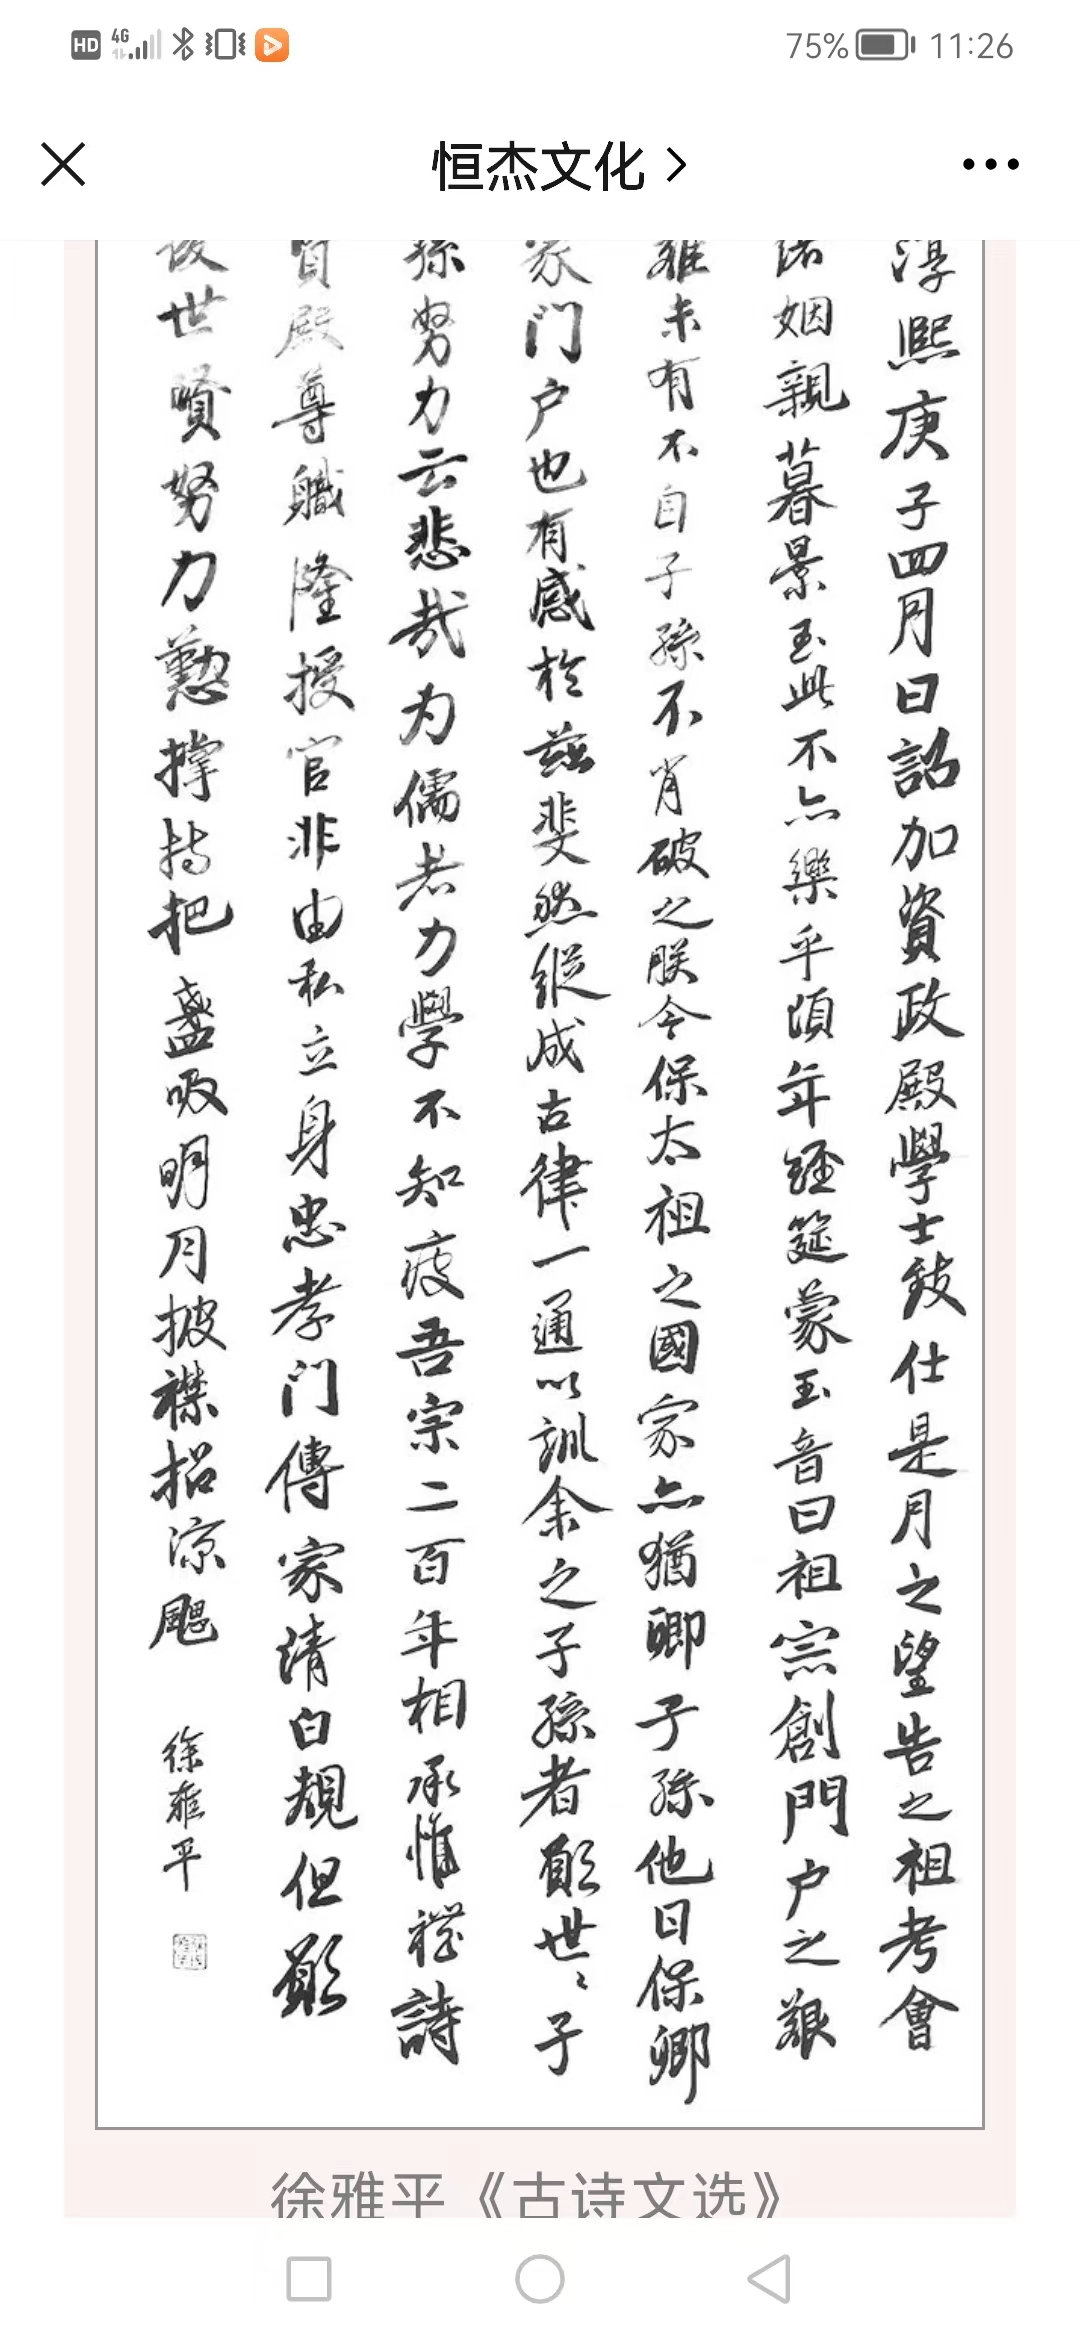 HD 4G 75% 11:26
恒杰文化
淳熙庚子四月日詔加資政殿學士致仕是月之望告之祖考會
諸姻親暮景至此不亦樂乎頃年經筵蒙玉音曰祖宗創門户之艱
難未有不自子孫不肖破之朕今保太祖之國家亦猶卿子孫他日保卿
家门户也有感於兹斐然縱成古律一通以訓余之子孫者願世〻子
孫努力云悲哉为儒者力學不知疲吾宗二百年相承惟禮詩
資殿尊職隆授官非由私立身忠孝门傳家清白規但願
後世賢努力勤撑持把盞吸明月披襟招凉颸
徐雅平
徐雅平《古诗文选》